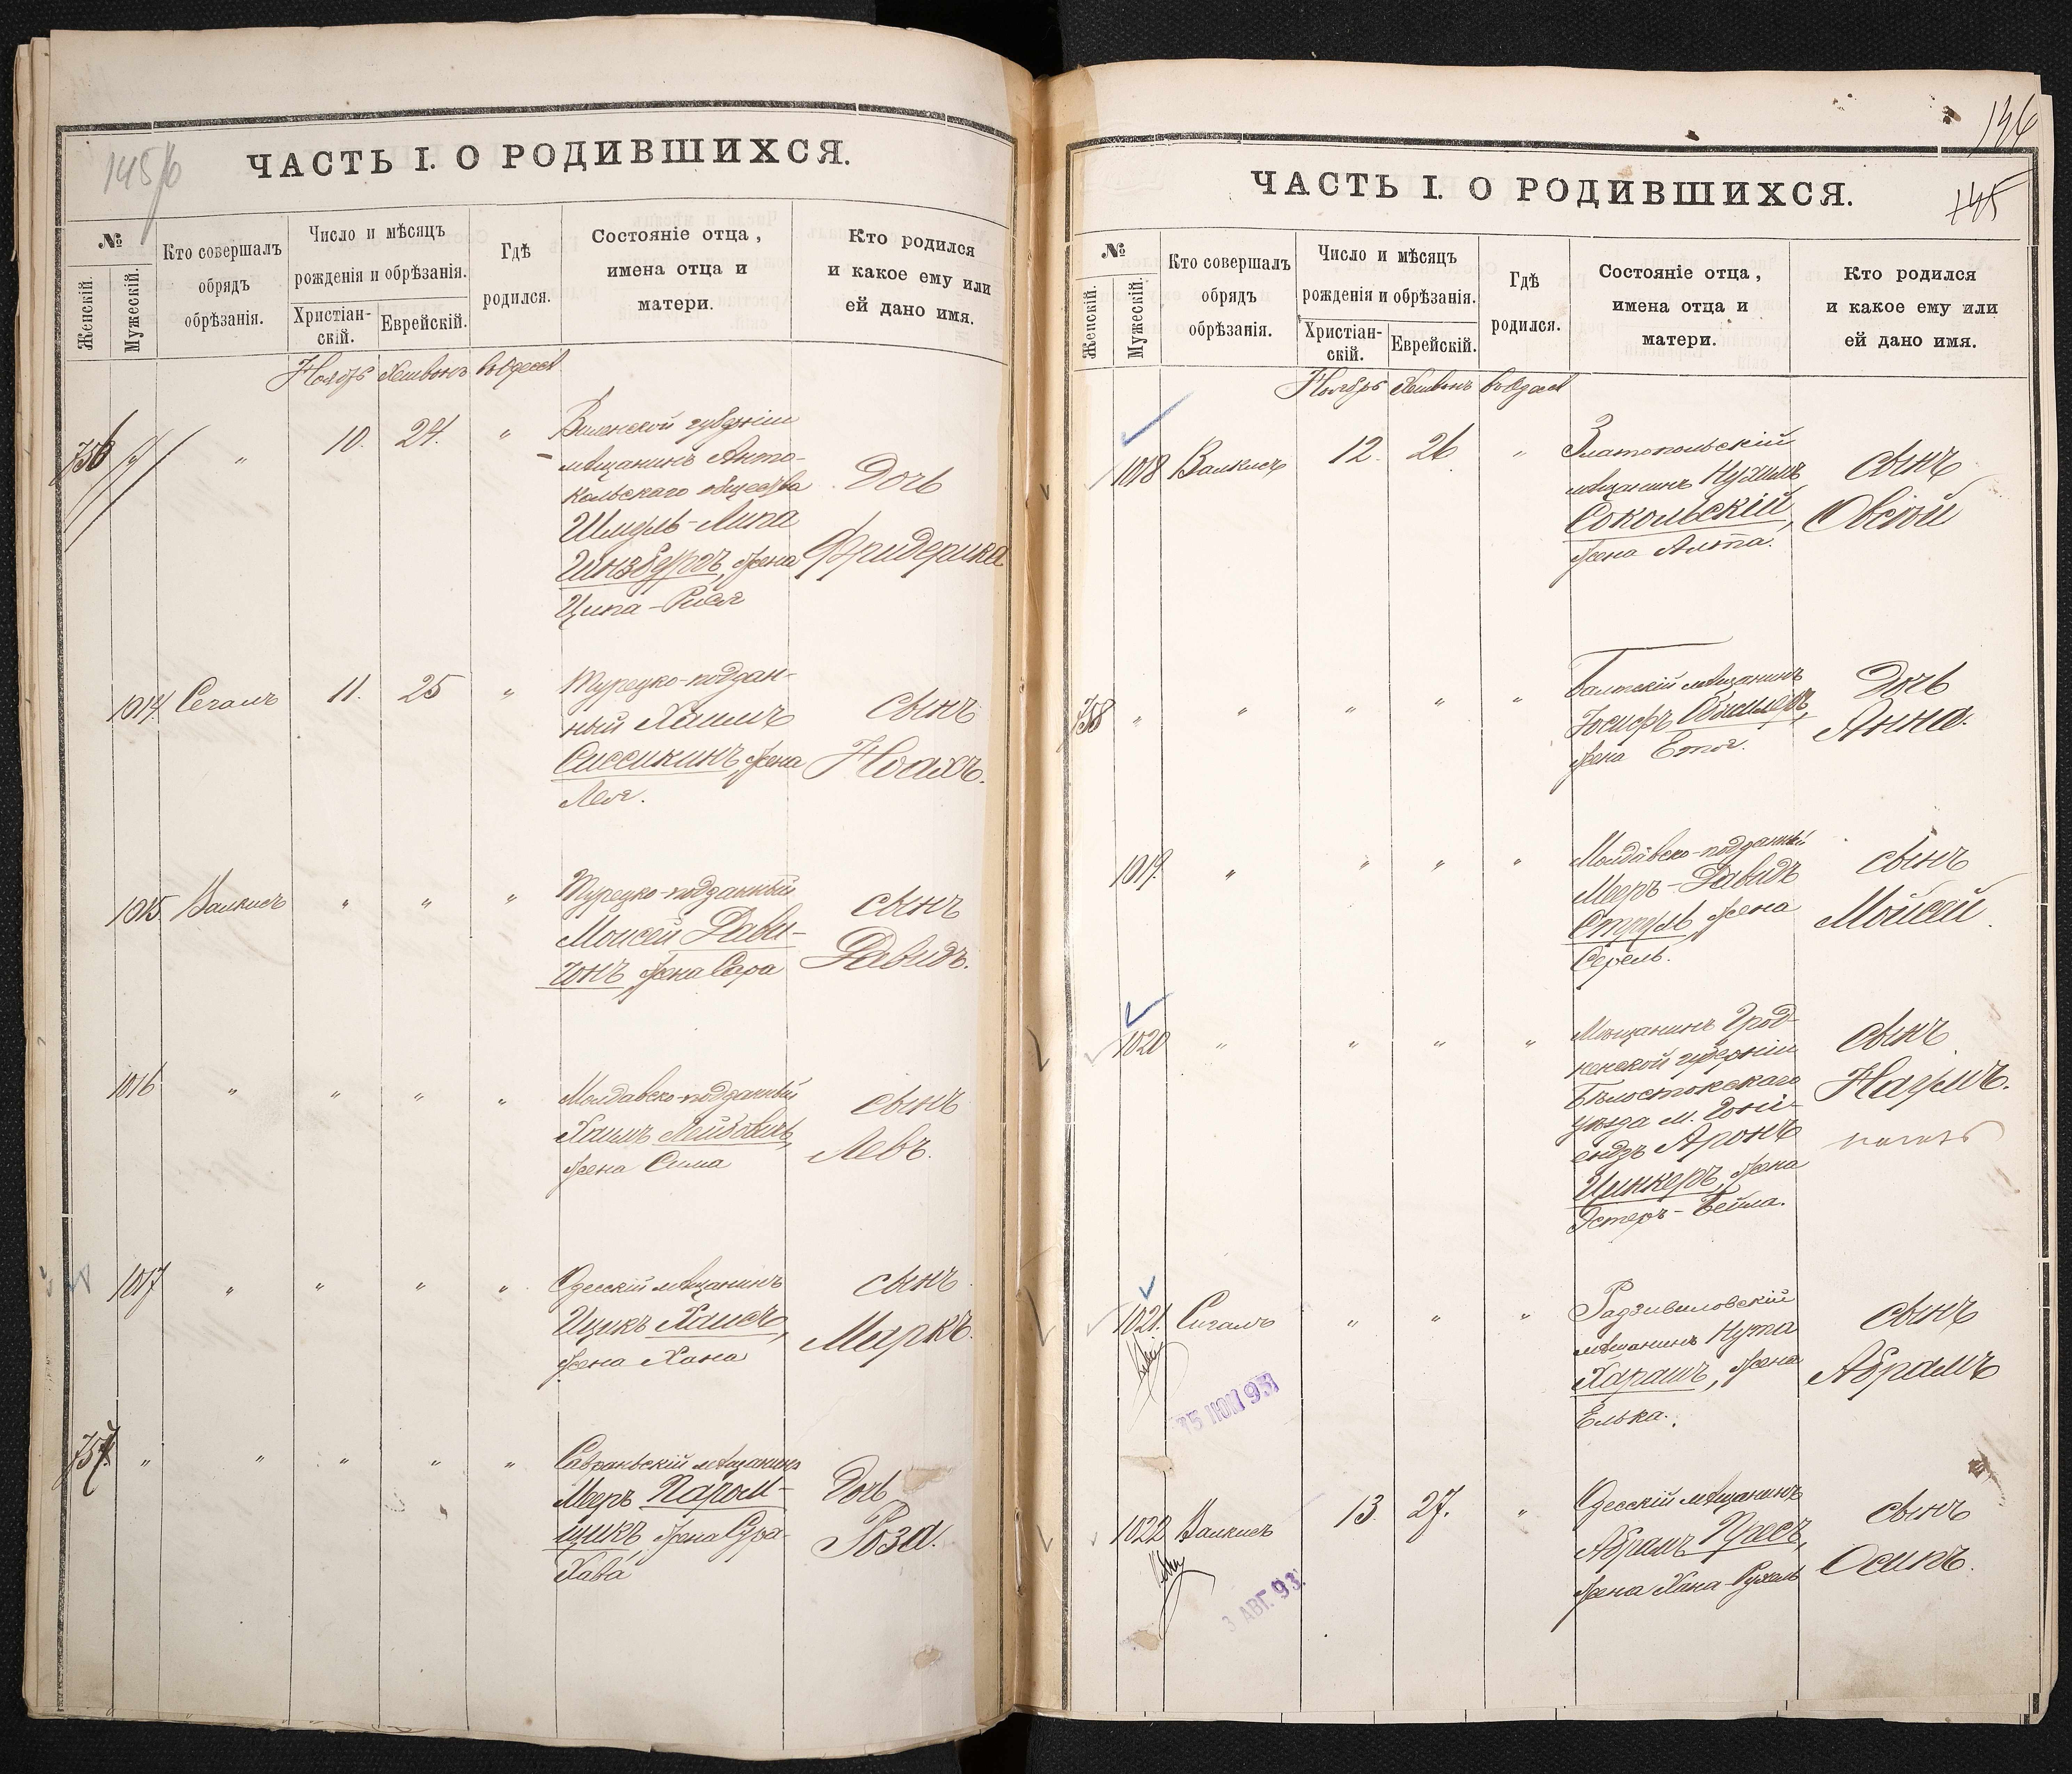 145/6
ЧАСТЬ I. О РОДИВШИХСЯ.
№
Женскій.
Мужескій.
Кто совершалъ
обрядъ
обрѣзанія.
Число и мѣсяцъ
рожденія и обрѣзанія.
Христіан-
скій.
Еврейскій.
Гдѣ
родился.
Состояніе отца,
имена отца и
матери.
Кто родился
и какое ему или
ей дано имя.
Ноябрь Хешвонъ въ Одессѣ
756 " 10. 24. "
Виленской губерніи
мѣщанинъ Анто-
кольскаго общества
Шмуль-Липа
Гинзбергъ, жена
Ципа-Рися
Дочь
Фридерика
1014. Сегалъ 11. 25 "
Турецко-поддан-
ный Хаимъ
Сиссикинъ, жена
Лея.
сынъ
Ноахъ.
1015. Валкисъ " " "
Турецко-подданный
Моисей Дави-
чонъ, жена Сара
сынъ
Давидъ.
1016 " " " "
Молдавско-подданный
Хаимъ Лейбовичъ,
жена Сима
сынъ
Левъ.
1017 " " " "
Одесскій мѣщанинъ
Ицикъ Хаисъ,
жена Хана
сынъ
Маркъ.
757. " " " " "
Савранскій мѣщанинъ
Меръ Паром-
щикъ, жена Сура-
Хава
Дочь
Роза.
136
145
ЧАСТЬ I. О РОДИВШИХСЯ.
№
Женскій.
Мужескій.
Кто совершалъ
обрядъ
обрѣзанія.
Число и мѣсяцъ
рожденія и обрѣзанія.
Христіан-
скій.
Еврейскій.
Гдѣ
родился.
Состояніе отца,
имена отца и
матери.
Кто родился
и какое ему или
ей дано имя.
Ноябрь Хешвонъ въ Одессѣ
1018 Валкисъ 12. 26 "
Златопольскій
мѣщанинъ Нухимъ
Сокольскій,
жена Алта.
сынъ
Овсій
758 " " " " "
Балтскій мѣщанинъ
Іосифъ
жена Етя.
Дочь
Анна.
1019. " " " "
Молдавско-подданный
Меръ-Давидъ
Струль, жена
Серель.
сынъ
Мойсей
1020 " " " "
Мѣщанинъ Грод-
ненской губерніи
Бѣлостокскаго
уѣзда м. Гоні-
ендзъ Аронъ
Цинкеръ, жена
Эстеръ-Бейла.
сынъ
Наумъ.
1021. Сигалъ " " "
Радзивиловскій
мѣщанинъ Нута
Харашъ, жена
Елька.
сынъ
Абрамъ
93
1022 Валкисъ 13. 27. "
Одесскій мѣщанинъ
Абрамъ Пресъ,
жена Хана-Рухель
сынъ
Осипъ.
3 АВГ. 93.